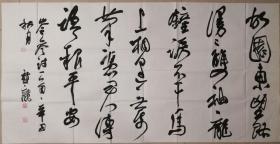 故園東望路
漫漫雙袖龍
鐘淚不干馬
上相逢無紙
筆憑君傳
語報平安
岑參詩一首